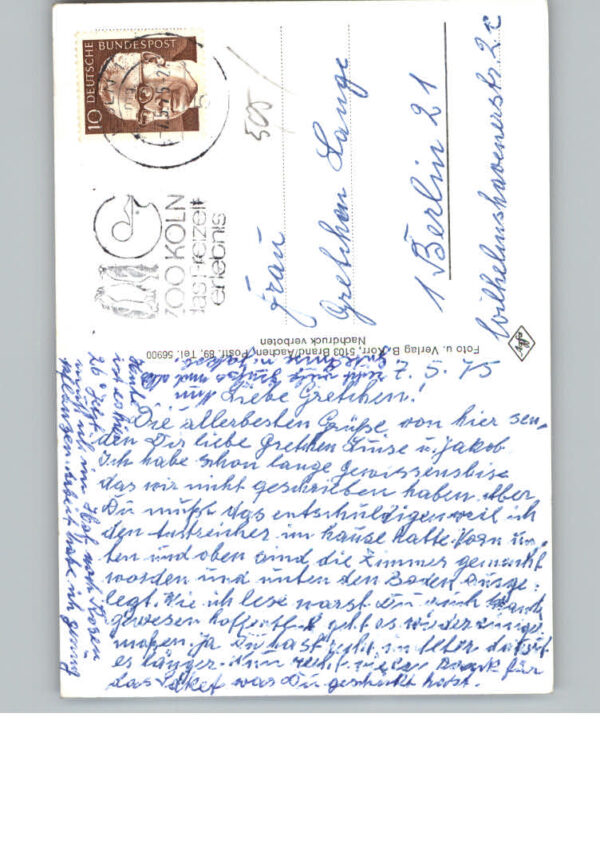 DEUTSCHE BUNDESPOST
10
ZOO KÖLN
das Freizeit-
erlebnis
505
Frau
Gretchen Lange
1 Berlin 21
Wilhelmshavenerstr 2c
Foto u. Verlag B. Korr, 5103 Brand/Aachen, Postf. 89, Tel. 56900
Nachdruck verboten
7. 5. 75
Liebe Gretchen!
Die allerbesten Grüße von hier sen-
den Dir liebe Gretchen Luise u. Jakob
Ich habe schon lange Gewissensbise
das wir nicht geschrieben haben. Aber
Du mußt das entschuldigen weil ich
den Anstreicher im hause hatte. Vorn un-
ten und oben sind die Zimmer gemacht
worden und unten den Boden ausge-
legt. Wie ich lese warst Du auch krank
gewesen hoffentlich geht es wieder einiger
maßen, ja Du hast recht, im Alter dauert
es länger. Nun recht vielen Dank für
das Paket was Du geschickt hast.
Nun
recht gute Grüße und alles
Gute Luise u. Jakob
Heute
ist es hier
26° jetzt
muß ich im Hof noch Rosen